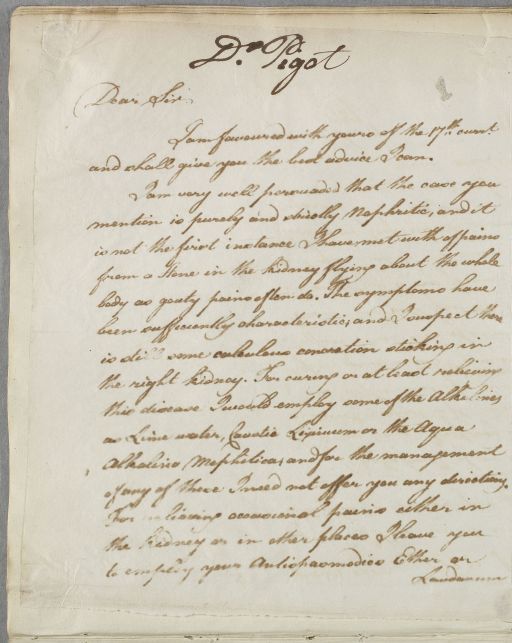 Dr. Pigot
1
Dear Sir
I am favoured with yours of the 17th curnt
and shall give you the best advice I can.
I am very well persuaded that the case you
mention is purely and strictly Nephritic, and it
is not the first instance I have met with of pains
from a Stone in the Kidney flying about the whole
body as gouty pains often do. The symptoms have
been sufficiently characteristic; and I suspect there
is still some calculous concretion sticking in
the right Kidney. For curing or at least relieving
this disease I would employ some of the Alkalines
as Lime water, Caustic Lixivium or the Aqua
Alkalina Mephitica, and for the management
of any of these I need not offer you any directions.
For relieving occasional pains either in
the Kidney or in other places I leave you
to employ your Antispasmodics Ether or
Laudanum